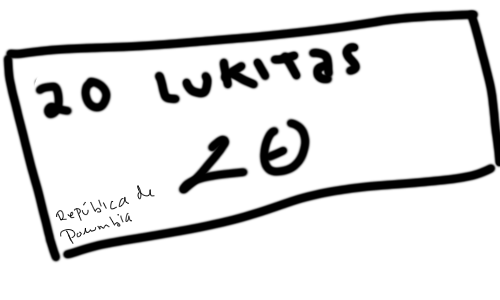 20 LUKITAS
20
República de
Polumbia